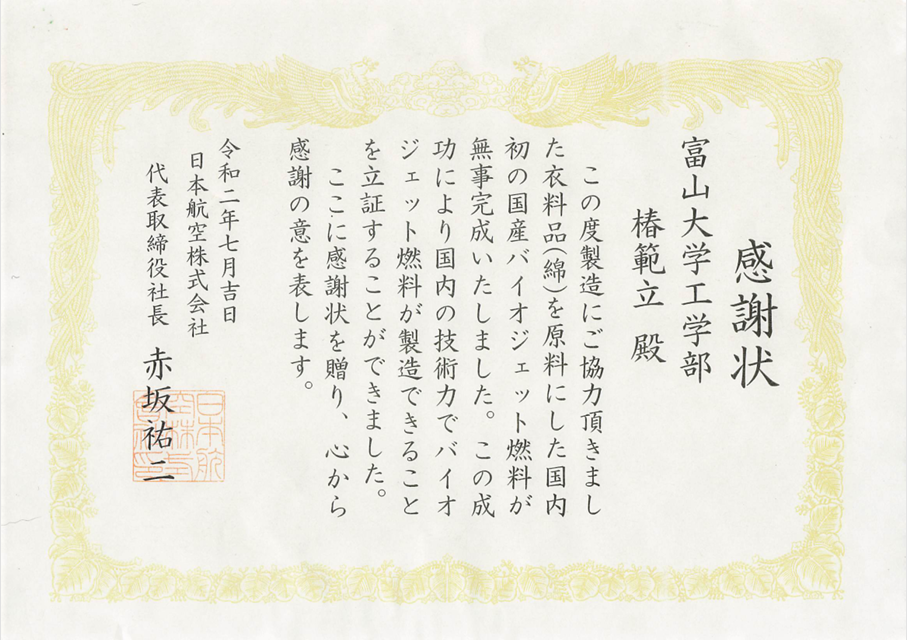 感謝状
富山大学工学部
椿範立 殿
この度製造にご協力頂きまし
た衣料品(綿)を原料にした国内
初の国産バイオジェット燃料が
無事完成いたしました。この成
功により国内の技術力でバイオ
ジェット燃料が製造できること
を立証することができました。
ここに感謝状を贈り、心から
感謝の意を表します。
令和二年七月吉日
日本航空株式会社
代表取締役社長 赤坂祐二